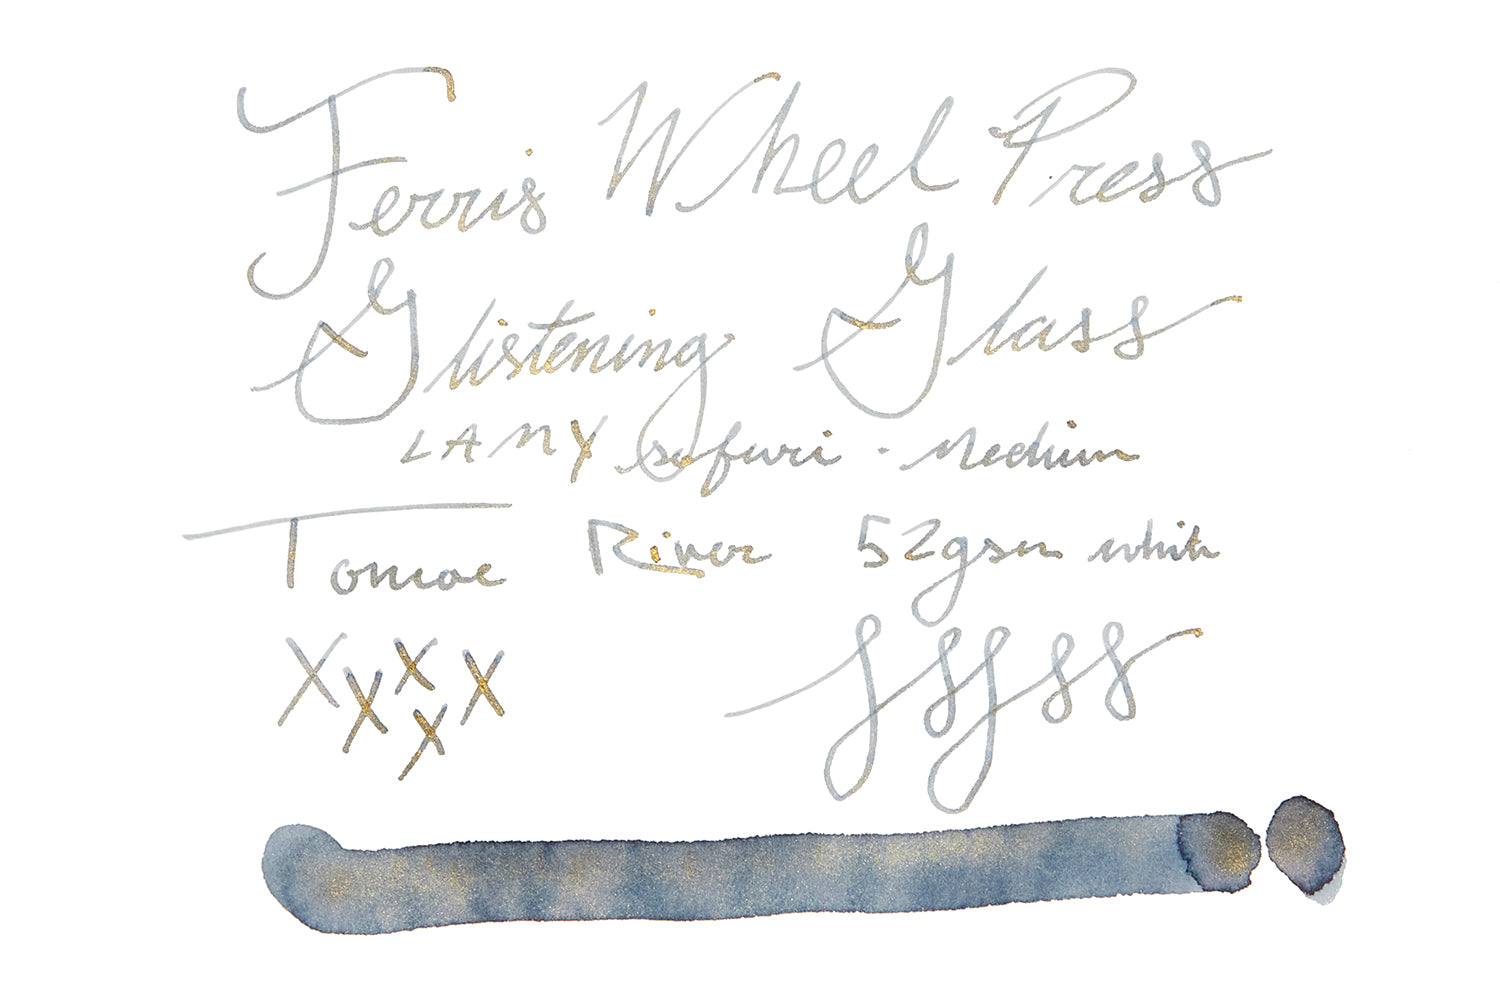 Ferris Wheel Press
Glistening Glass
LAMY safari - Medium
Tomoe River 52gsm white
XXXXX